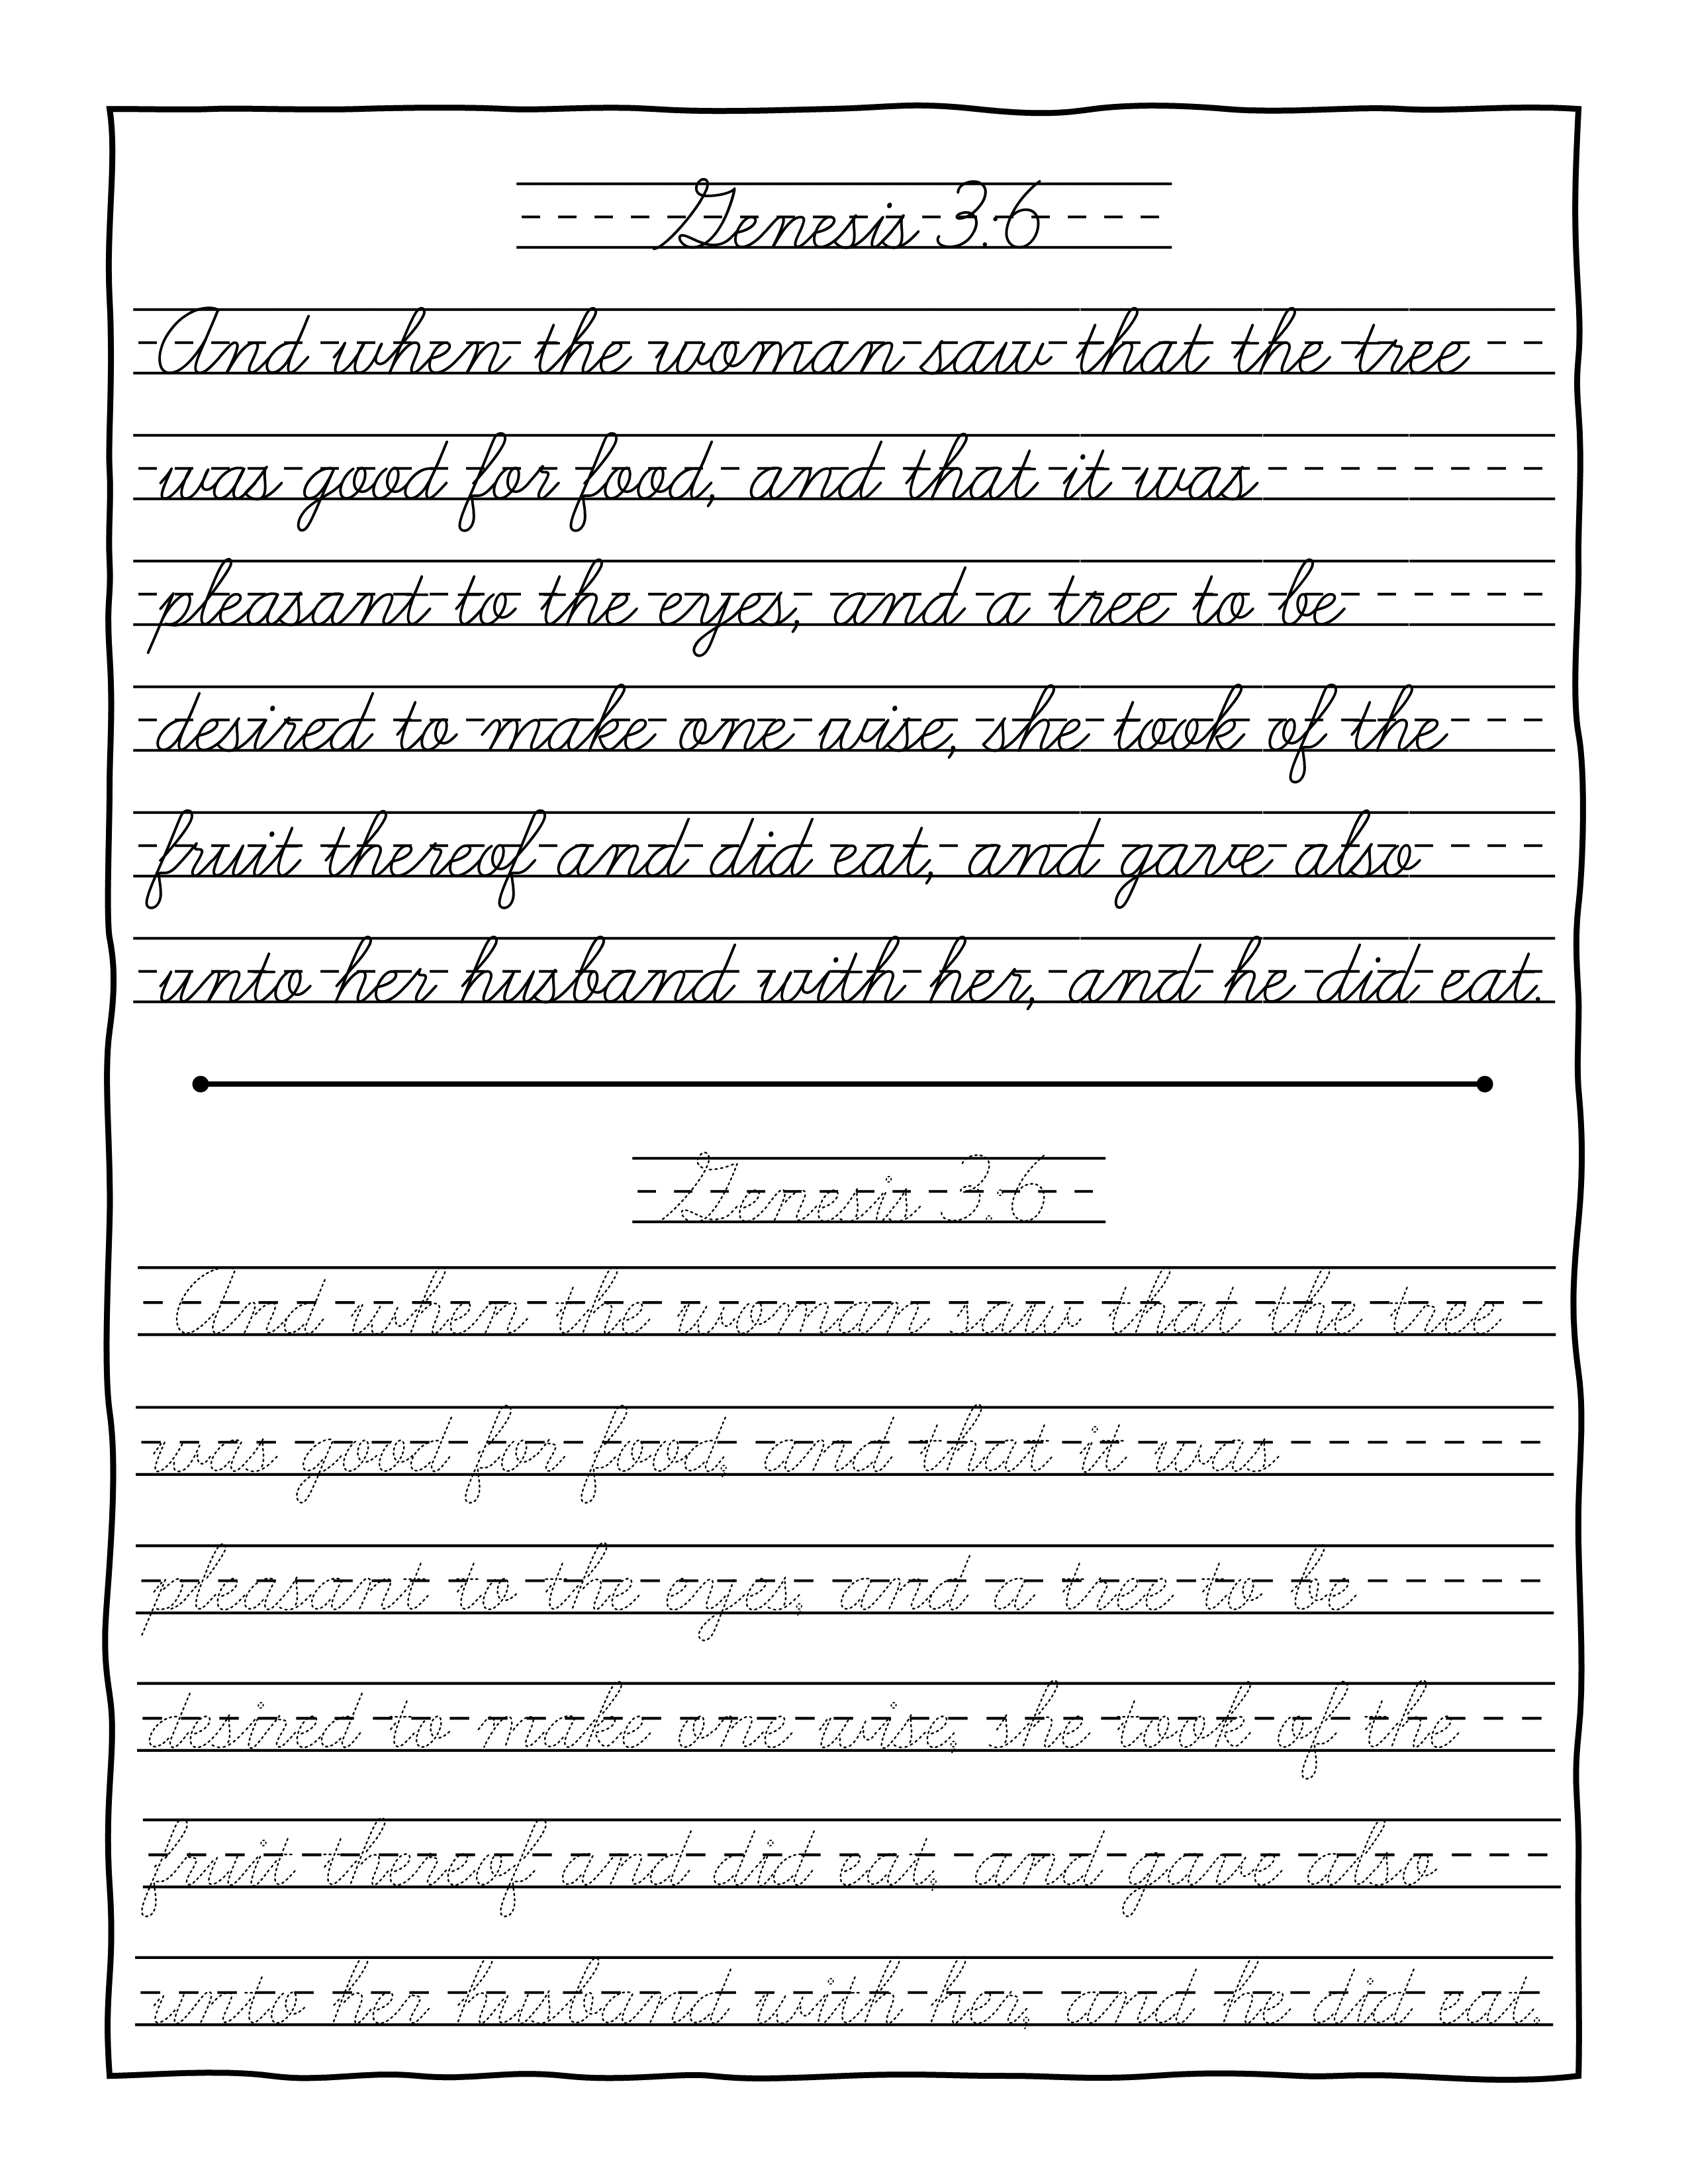 Genesis 3:6
And when the woman saw that the tree
was good for food, and that it was
pleasant to the eyes, and a tree to be
desired to make one wise, she took of the
fruit thereof and did eat, and gave also
unto her husband with her, and he did eat.
Genesis 3:6
And when the woman saw that the tree
was good for food, and that it was
pleasant to the eyes, and a tree to be
desired to make one wise, she took of the
fruit thereof and did eat, and gave also
unto her husband with her, and he did eat.